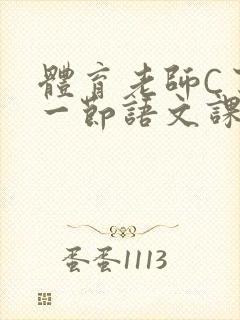 體育老師C了
一節語文課
蛋蛋1113